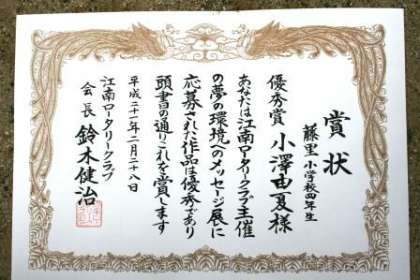 賞状
藤里小学校四年生
優秀賞 小澤由夏様
あなたは江南ロータリークラブ主催
の夢の環境へのメッセージ展に
応募された作品は優秀であり
頭書の通りこれを賞します
平成二十一年一月二十八日
江南ロータリークラブ
会長 鈴木健治